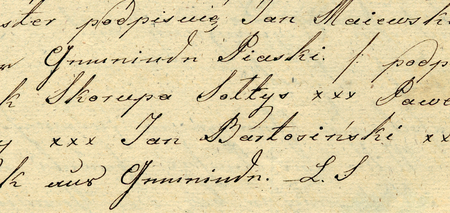 ster podpisuię Jan Maiewsk
Gmnindn Piaski. /: podp
k Skorupa Sołtys xxx Pawe
y xxx Jan Bartosiński xx
k aus Gmnindn. L. S